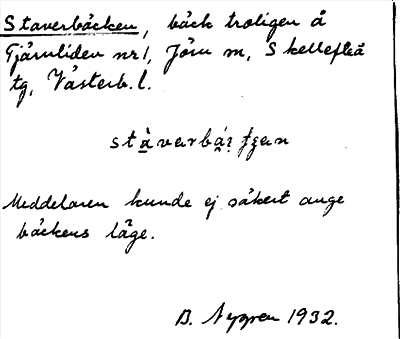 Staverbäcken, bäck troligen å
Tjärnliden nr 1, Jörn sn, Skellefteå
tg, Västerb. l.
Meddelaren kunde ej säkert ange
bäckens läge.
B. Nygren 1932.